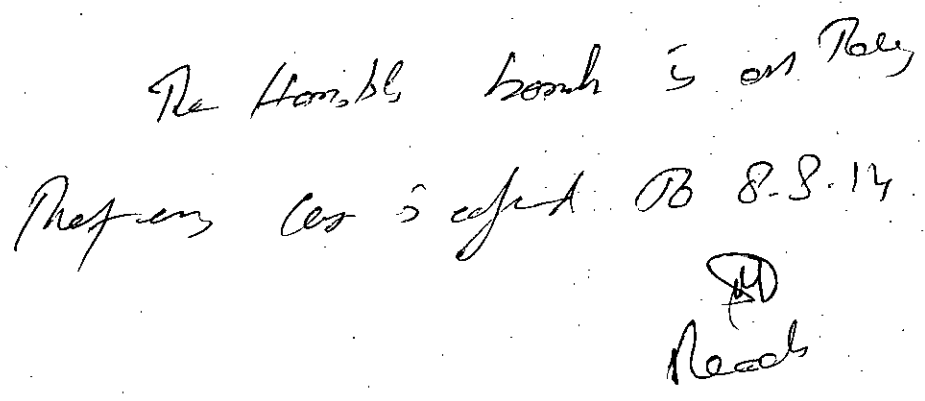 The Hon,ble bench is on Tour
Therefore case is adjourned To 8-8-14
Reader